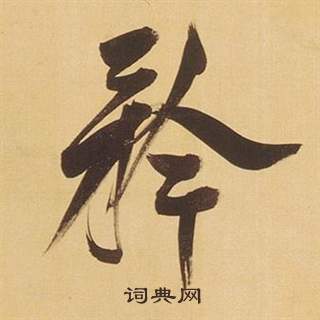 矜
词典网